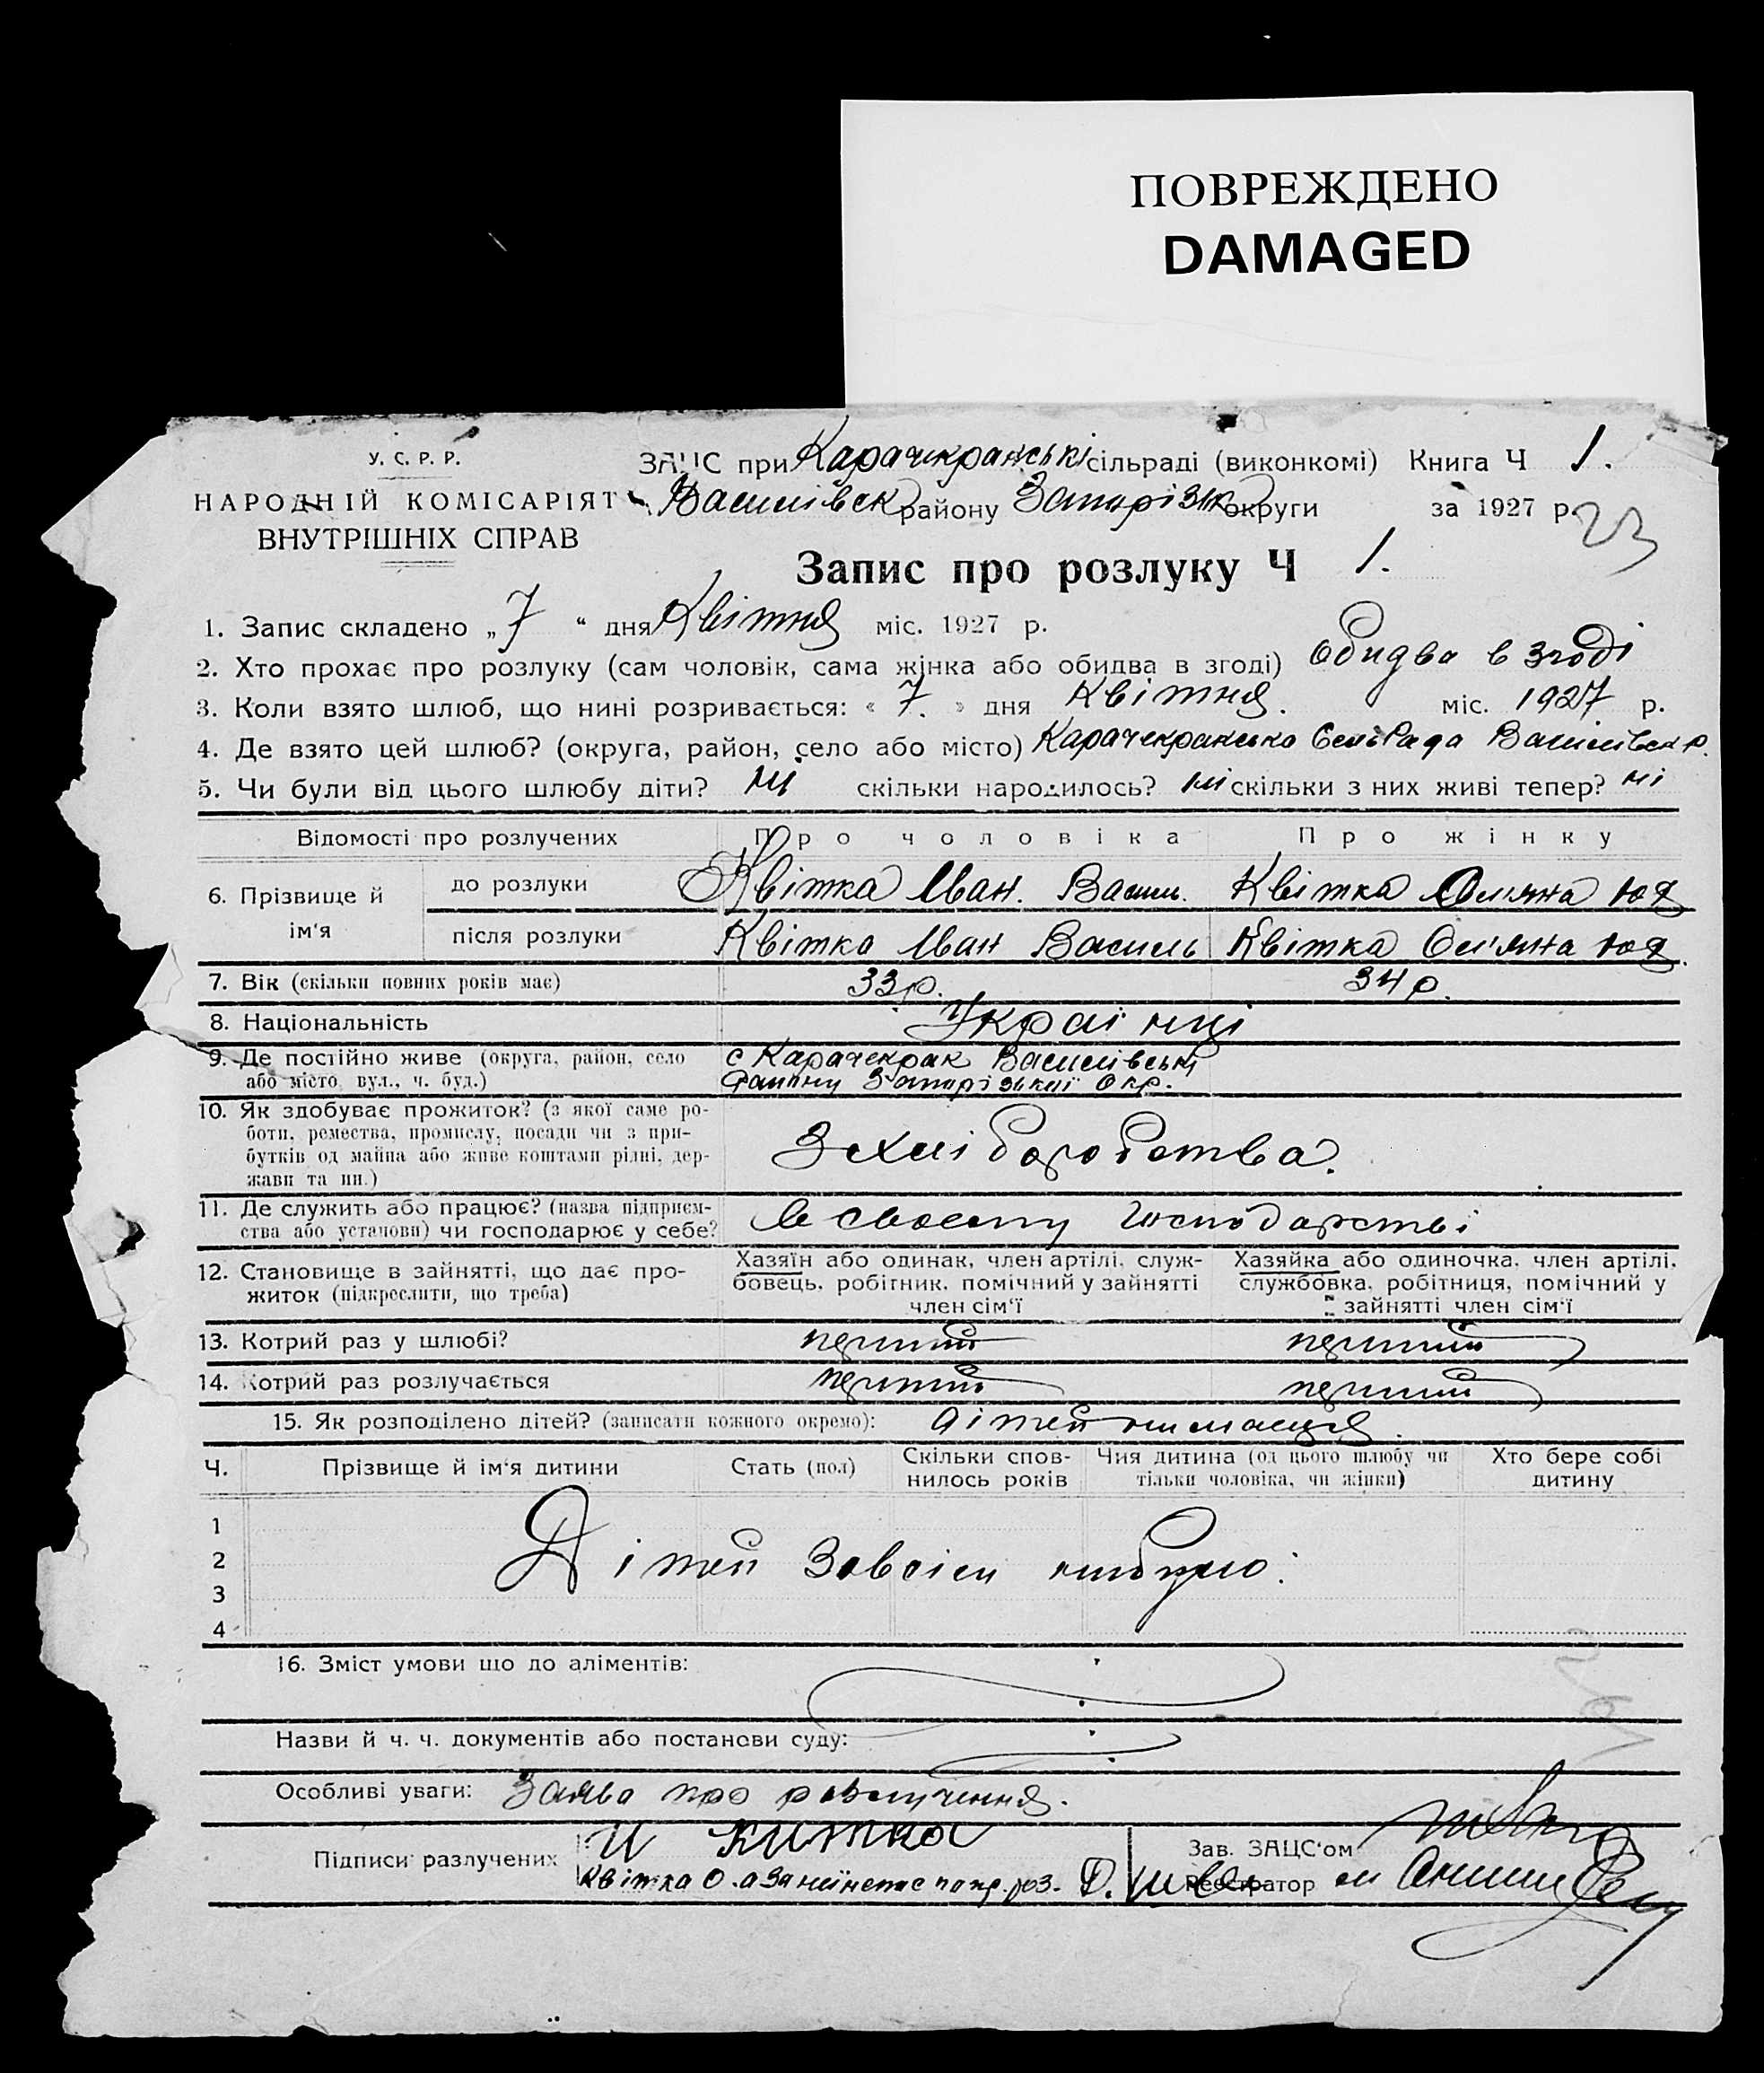 ПОВРЕЖДЕНО
DAMAGED
У. С. Р. Р.
НАРОДНІЙ КОМІСАРІЯТ
ВНУТРІШНІХ СПРАВ
ЗАЦС при Карачекранські сільраді (виконкомі) Книга Ч 1.
Василівськ району Запорізьк округи за 1927 р. 23
Запис про розлуку Ч 1.
1. Запис складено „7“ дня Квітня міс. 1927 р.
2. Хто прохає про розлуку (сам чоловік, сама жінка або обидва в згоді) Обидва в згоді
3. Коли взято шлюб, що нині розривається: « 7. » дня Квітня. міс. 1927 р.
4. Де взято цей шлюб? (округа, район, село або місто) Карачекранська СельРада Василівськ р.
5. Чи були від цього шлюбу діти? ні скільки народилось? ні скільки з них живі тепер? ні
Відомості про розлучених Про чоловіка Про жінку
6. Прізвище й ім'я
до розлуки Квітка Іван. Василь. Квітка Юд
після розлуки Квітка Іван Василь Квітка Юд.
7. Вік (скільки повних років має) 33 р. 34 р.
8. Національність Україї нці
9. Де постійно живе (округа, район, село с Карачекрак Василівські
або місто, вул., ч. буд.) району Запорізькиї Окр.
10. Як здобуває прожиток? (з якої саме ро-
боти, ремества, промислу, посади чи з при-
бутків од майна або живе коштами рідні, дер-
жави та ин.)
З хліборобства.
11. Де служить або працює? (назва підприєм-
ства або установи) чи господарює у себе?
В своєму господарстві
12. Становище в зайнятті, що дає про-
житок (підкреслити, що треба)
Хазяїн або одинак, член артілі, служ-
бовець, робітник, помічний у зайнятті
член сім'ї
Хазяйка або одиночка, член артілі,
службовка, робітниця, помічний у
зайнятті член сім'ї
13. Котрий раз у шлюбі? перший перший
14. Котрий раз розлучається перший перший
15. Як розподілено дітей? (записати кожного окремо): дітей нимаеця.
Ч. Прізвище й ім'я дитини Стать (пол) Скільки спов-нилось років Чия дитина (од цього шлюбу чи тільки чоловіка, чи жінки) Хто бере собі дитину
1
2 Дітей зовсім нибуло.
3
4
16. Зміст умови що до аліментів:
Назви й ч. ч. документів або постанови суду:
Особливі уваги: Заява про розлучення.
Підписи разлучених И Китка
Квітка О. а за ниїнепис
Зав. ЗАЦС'ом
Реєстратор